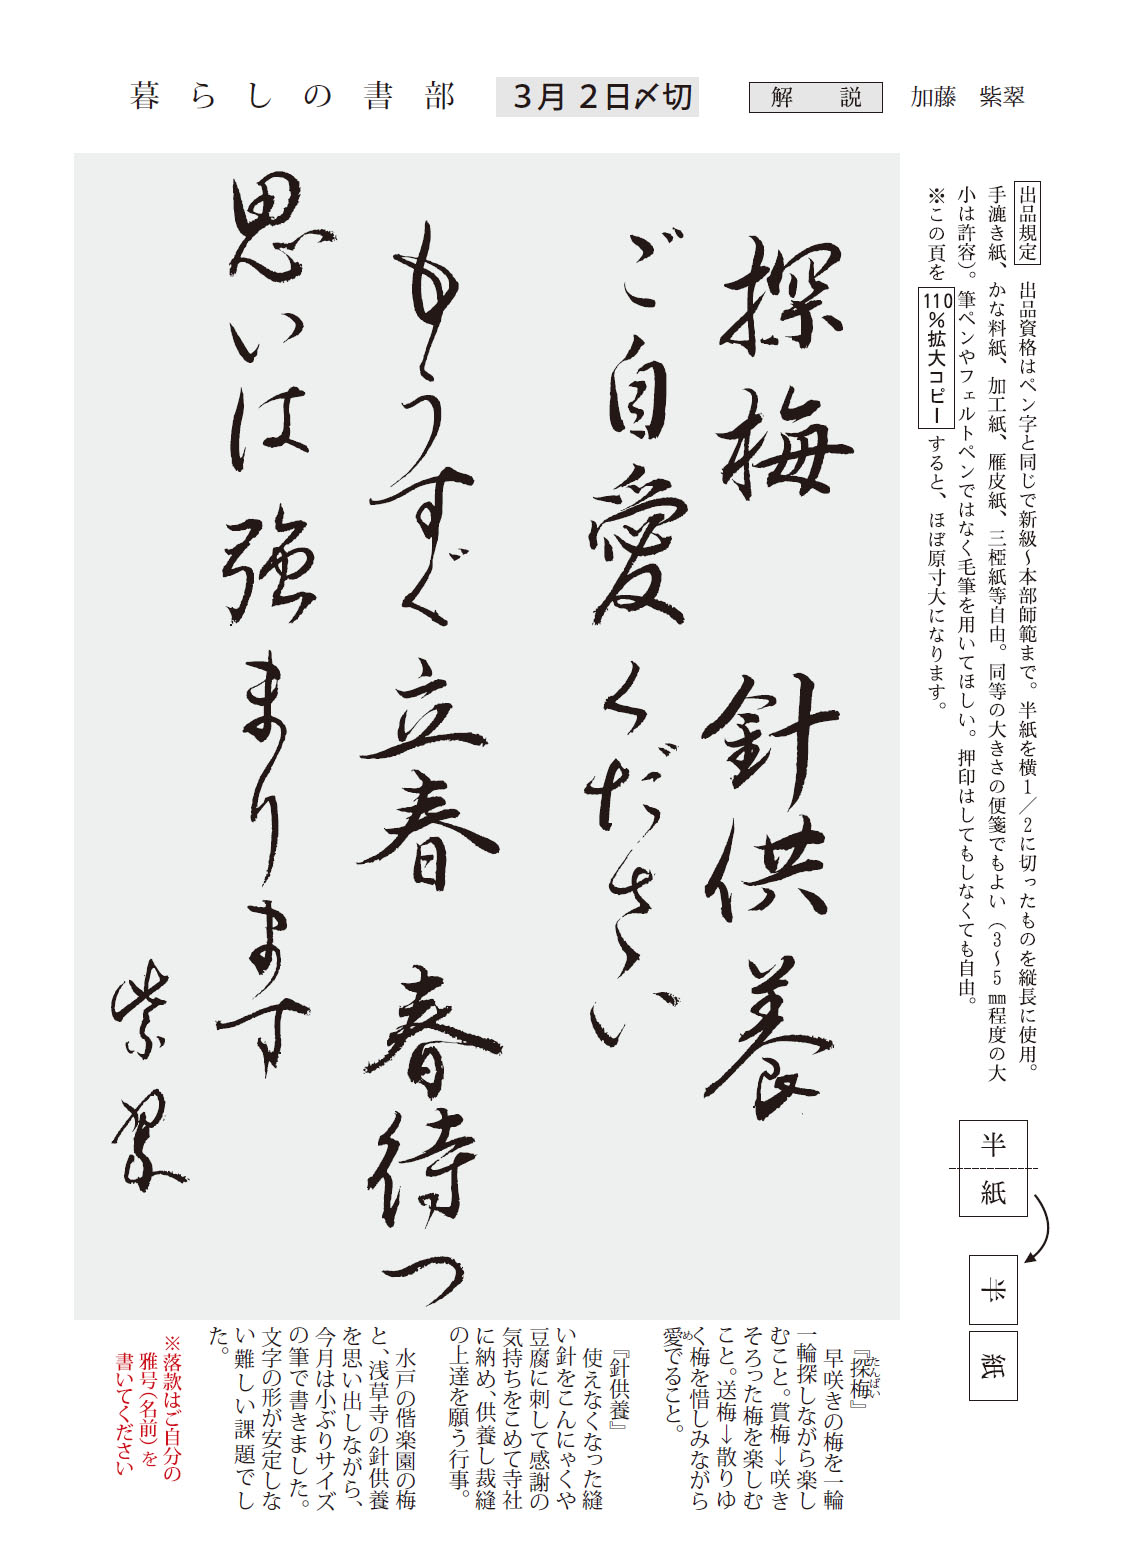 暮らしの書部
３月２日〆切
解説
加藤　紫翠
出品規定　出品資格はペン字と同じで新級〜本部師範まで。半紙を横１／２に切ったものを縦長に使用。
手漉き紙、かな料紙、加工紙、雁皮紙、三椏紙等自由。同等の大きさの便箋でもよい（３〜５㎜程度の大
小は許容）。筆ペンやフェルトペンではなく毛筆を用いてほしい。押印はしてもしなくても自由。
※この頁を110％拡大コピーすると、ほぼ原寸大になります。
半紙
半紙
探梅　針供養
ご自愛ください
もうすぐ立春　春待つ
思いは強まります
紫翠
『探梅』
たんばい
早咲きの梅を一輪
一輪探しながら楽し
むこと。賞梅→咲き
そろった梅を楽しむ
こと。送梅→散りゆ
く梅を惜しみながら
愛でること。
め
『針供養』
使えなくなった縫
い針をこんにゃくや
豆腐に刺して感謝の
気持ちをこめて寺社
に納め、供養し裁縫
の上達を願う行事。
水戸の偕楽園の梅
と、浅草寺の針供養
を思い出しながら、
今月は小ぶりサイズ
の筆で書きました。
文字の形が安定しな
い難しい課題でし
た。
※落款はご自分の
雅号（名前）を
書いてください